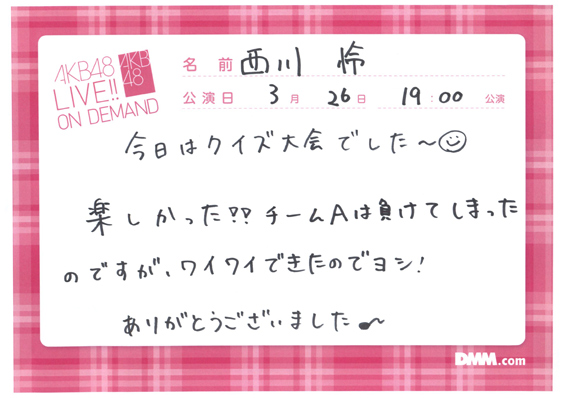 AKB48
LIVE!!
ON DEMAND
AKB
48
名前 西川 怜
公演日 3月 26日 19:00 公演
今日はクイズ大会でした〜☺
楽しかった!? チームAは負けてしまった
のですが、ワイワイできたのでヨシ!
ありがとうございました♪〜
DMM.com